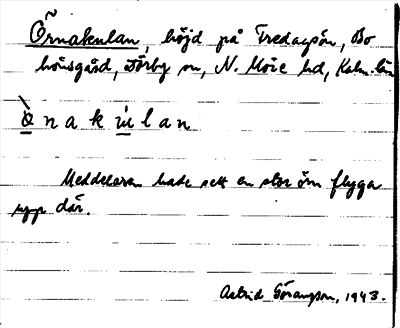 Örnakulan, höjd på Fredagsön, Bo
hörsgård, Torby sn, N. Möre hd, Kalm. län
ò n a k ù l a n
Meddelaren hade sett en stor örn flyga
upp där.
Astrid Göranson, 1943.